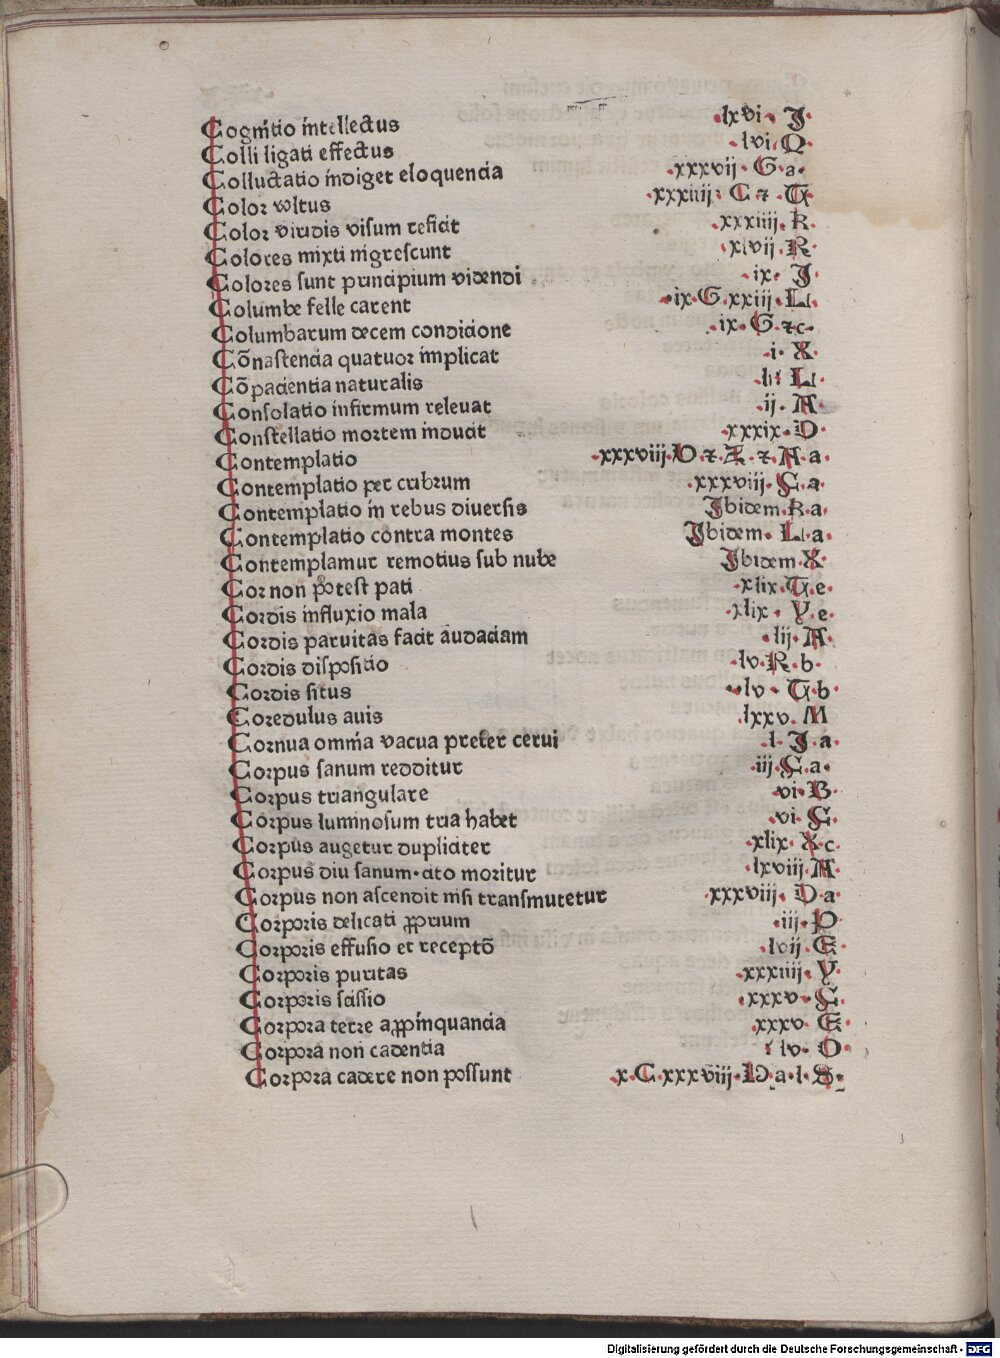 Cognitio intellectus .lxvi. J.
Colli ligati effectus .lvi. Q.
Colluctatio indiget eloquencia .xxxvij. G. a.
Color vultus .xxxiiij. C ⁊ G.
Color viridis visum reficit .xxxiiij. R.
Colores mixti nigrescunt .xlvij. R.
Colores sunt principium videndi .ix. J.
Columbe felle carent .ix. G. xxiij. L.
Columbarum decem condicione .ix. G. ⁊c.
Cōnascencia quatuor implicat .i. X.
Cōpaciencia naturalis L.
Consolatio infirmum releuat .ij. A.
Constellatio mortem inducit .xxxix. D.
Contemplatio .xxxviij. V. ⁊. Z. ⁊. A. a.
Contemplatio per cribrum .xxxviij. C. a.
Contemplatio in rebus diuersis Ibidem. K a.
Contemplatio contra montes Ibidem. L. a.
Contemplamur remotius sub nube Ibidem X.
Cor non potest pati .xlix. T. e.
Cordis influxio mala .xlix. V. e.
Cordis paruitas facit audaciam .lij. A.
Cordis dispositio .lv. R. b.
Cordis situs .lv. T. b.
Coredulus auis .lxxv. M
Cornua omnia vacua preter cerui .l. J. a.
Corpus sanum redditur .iij. C. a.
Corpus triangulare .vi. B.
Corpus luminosum tria habet .vi. C.
Corpus augetur dupliciter .xlix. X. c.
Corpus diu sanum. cito moritur .lxviij. A.
Corpus non ascendit nisi transmutetur .xxxviij. D a.
Corporis delicati ꝓprium .iij. P
Corporis effusio et receptō .lvij. E.
Corporis puritas .xxxiiij. V.
Corporis scissio .xxxv. C.
Corpora terre aꝓpinquancia .xxxv. E.
Corpora non cadentia lv. O
Corpora cadere non possunt .x. C. xxxviij. D. a. l. S.
Digitalisierung gefördert durch die Deutsche Forschungsgemeinschaft - DFG